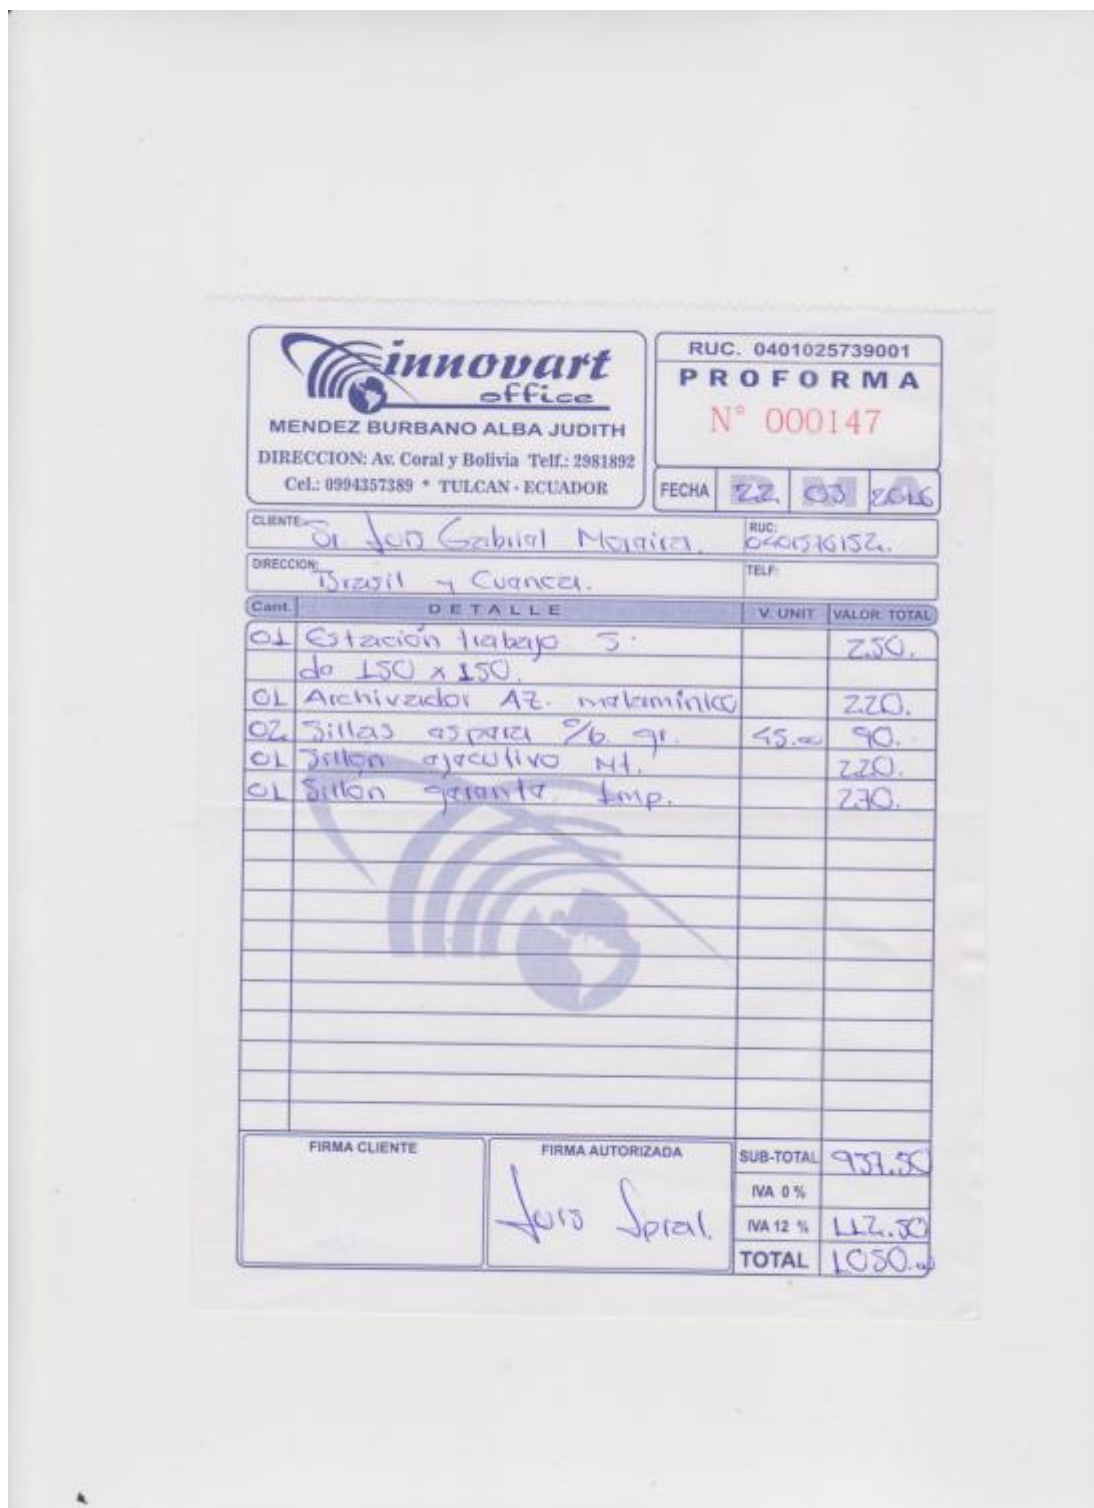 innovart
office
MENDEZ BURBANO ALBA JUDITH
DIRECCION: Av. Coral y Bolivia Telf.: 2981892
Cel.: 0994357389 * TULCAN - ECUADOR
RUC. 0401025739001
PROFORMA
N° 000147
FECHA 22 03 2016
CLIENTE: Sr Luis Gabriel Moreira. RUC:
DIRECCION: Brasil y Cuenca. TELF:
Cant. DETALLE V. UNIT VALOR TOTAL
01 Estación trabajo S. 250.
de 150 x 150.
01 Archivador AZ. melaminico 220.
02 Sillas espera gr. 45.00 90.
01 Sillon ejecutivo Nt. 220.
01 Sillón gerente Imp. 270.
FIRMA CLIENTE
FIRMA AUTORIZADA
Luis
SUB-TOTAL 937.50
IVA 0 %
IVA 12 % 112.50
TOTAL 1050.00